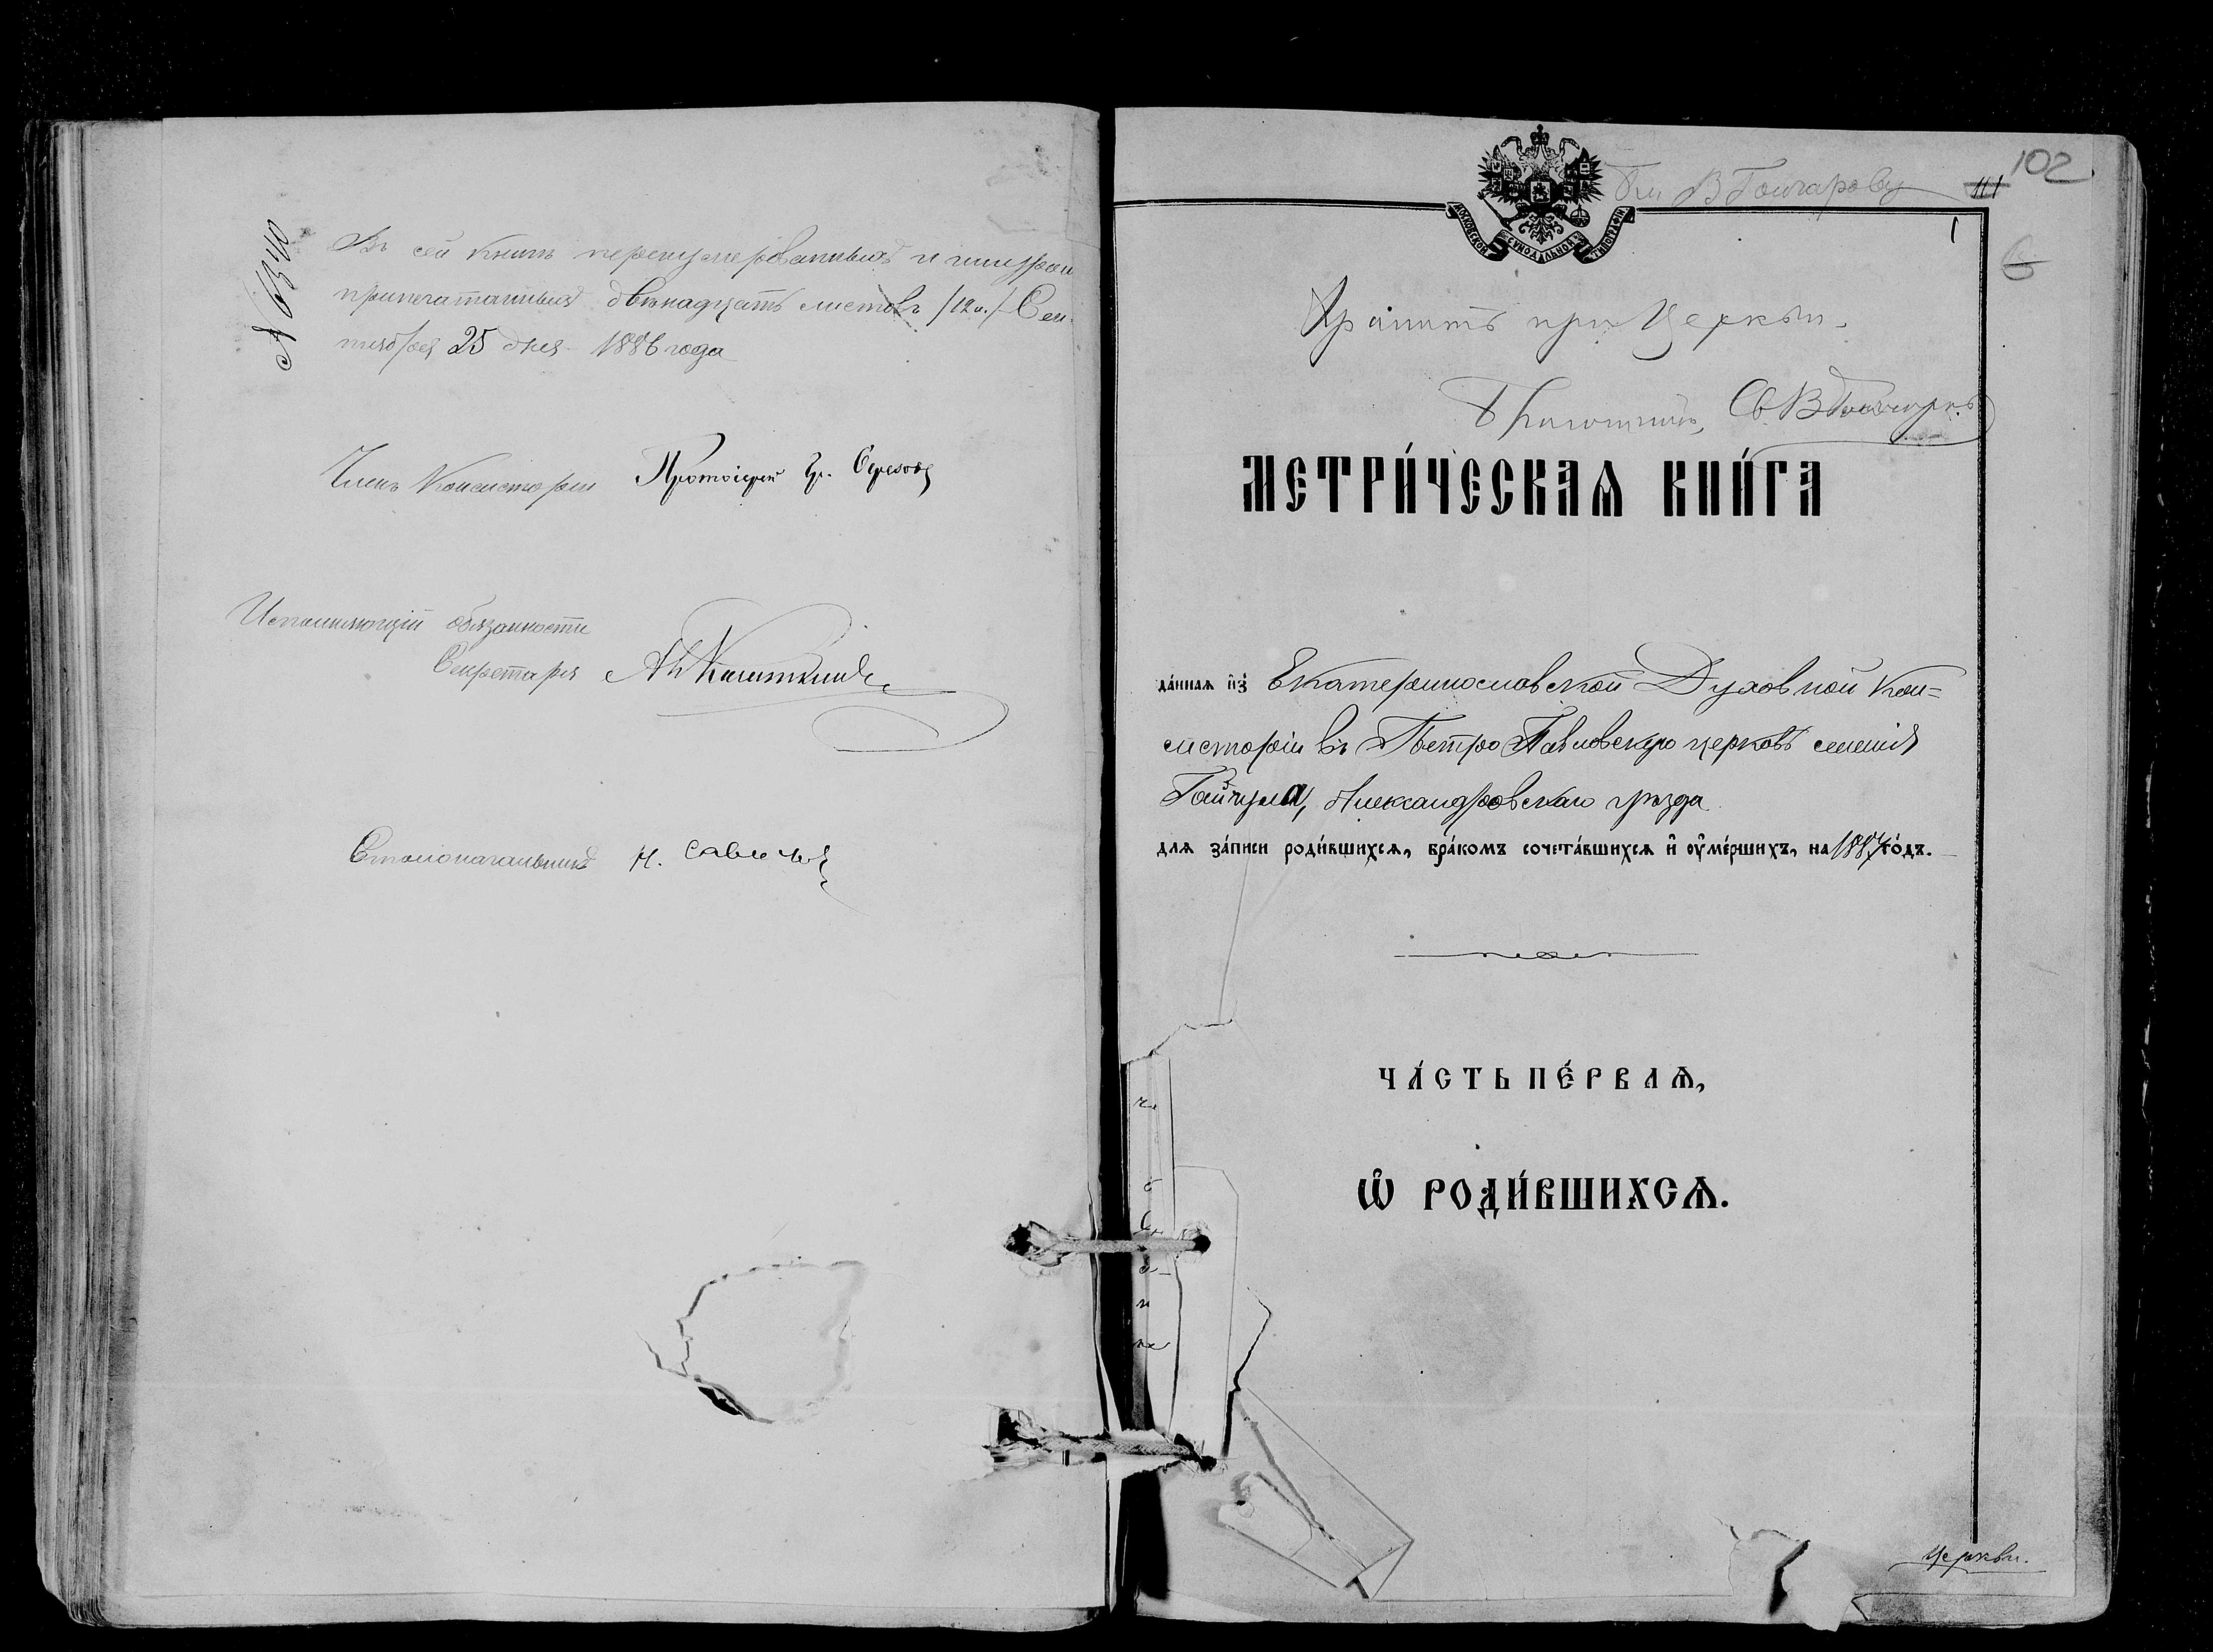 № 6340
Въ сей книгѣ перенумерованныхъ и шнуром
припечатанных двѣнадцать листовъ /12 л./ Сен-
тября 25 дня 1886 года
Членъ Консисторіи Протоіерей Гр.
Исполняющій обязанности
Секретаря
Столоначальникъ Н. Савичъ
Бл. В Гончарову 111 102
МОСКОВСКОЙ СѴНОДАЛЬНОЙ ТИПОГРАФІИ
1
6
Хранить при Церкви.
Благочинный, Св. В Гончаровъ
МЕТРИ́ЧЕСКАѦ КНИ́ГА
да́ннаѧ и҆з̾ Екатеринославской Духовной Кон=
систоріи въ Петро Павловскую церковь селенія
Гайчула, Александровскаго уѣзда
для за́писи роди́вшихсѧ, бра́комъ сочета́вшихсѧ и҆ ѹ҆ме́ршихъ, на 1887 го́дъ.
ЧА́СТЬ ПЕ́РВАѦ,
Ѡ҆ РОДИ́ВШИХСѦ.
Церкви.